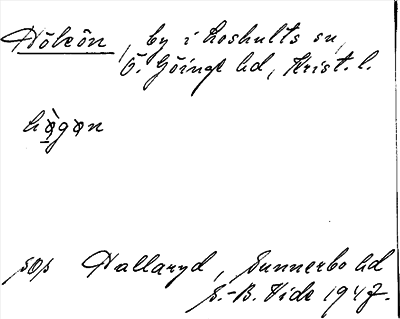 Hökön, by i Loshults sn,
Ö. Göinge hd, Krist. l.
hø̀gøn
sop Hallaryd, Sunnerbo hd
S.-B. Vide 1947.